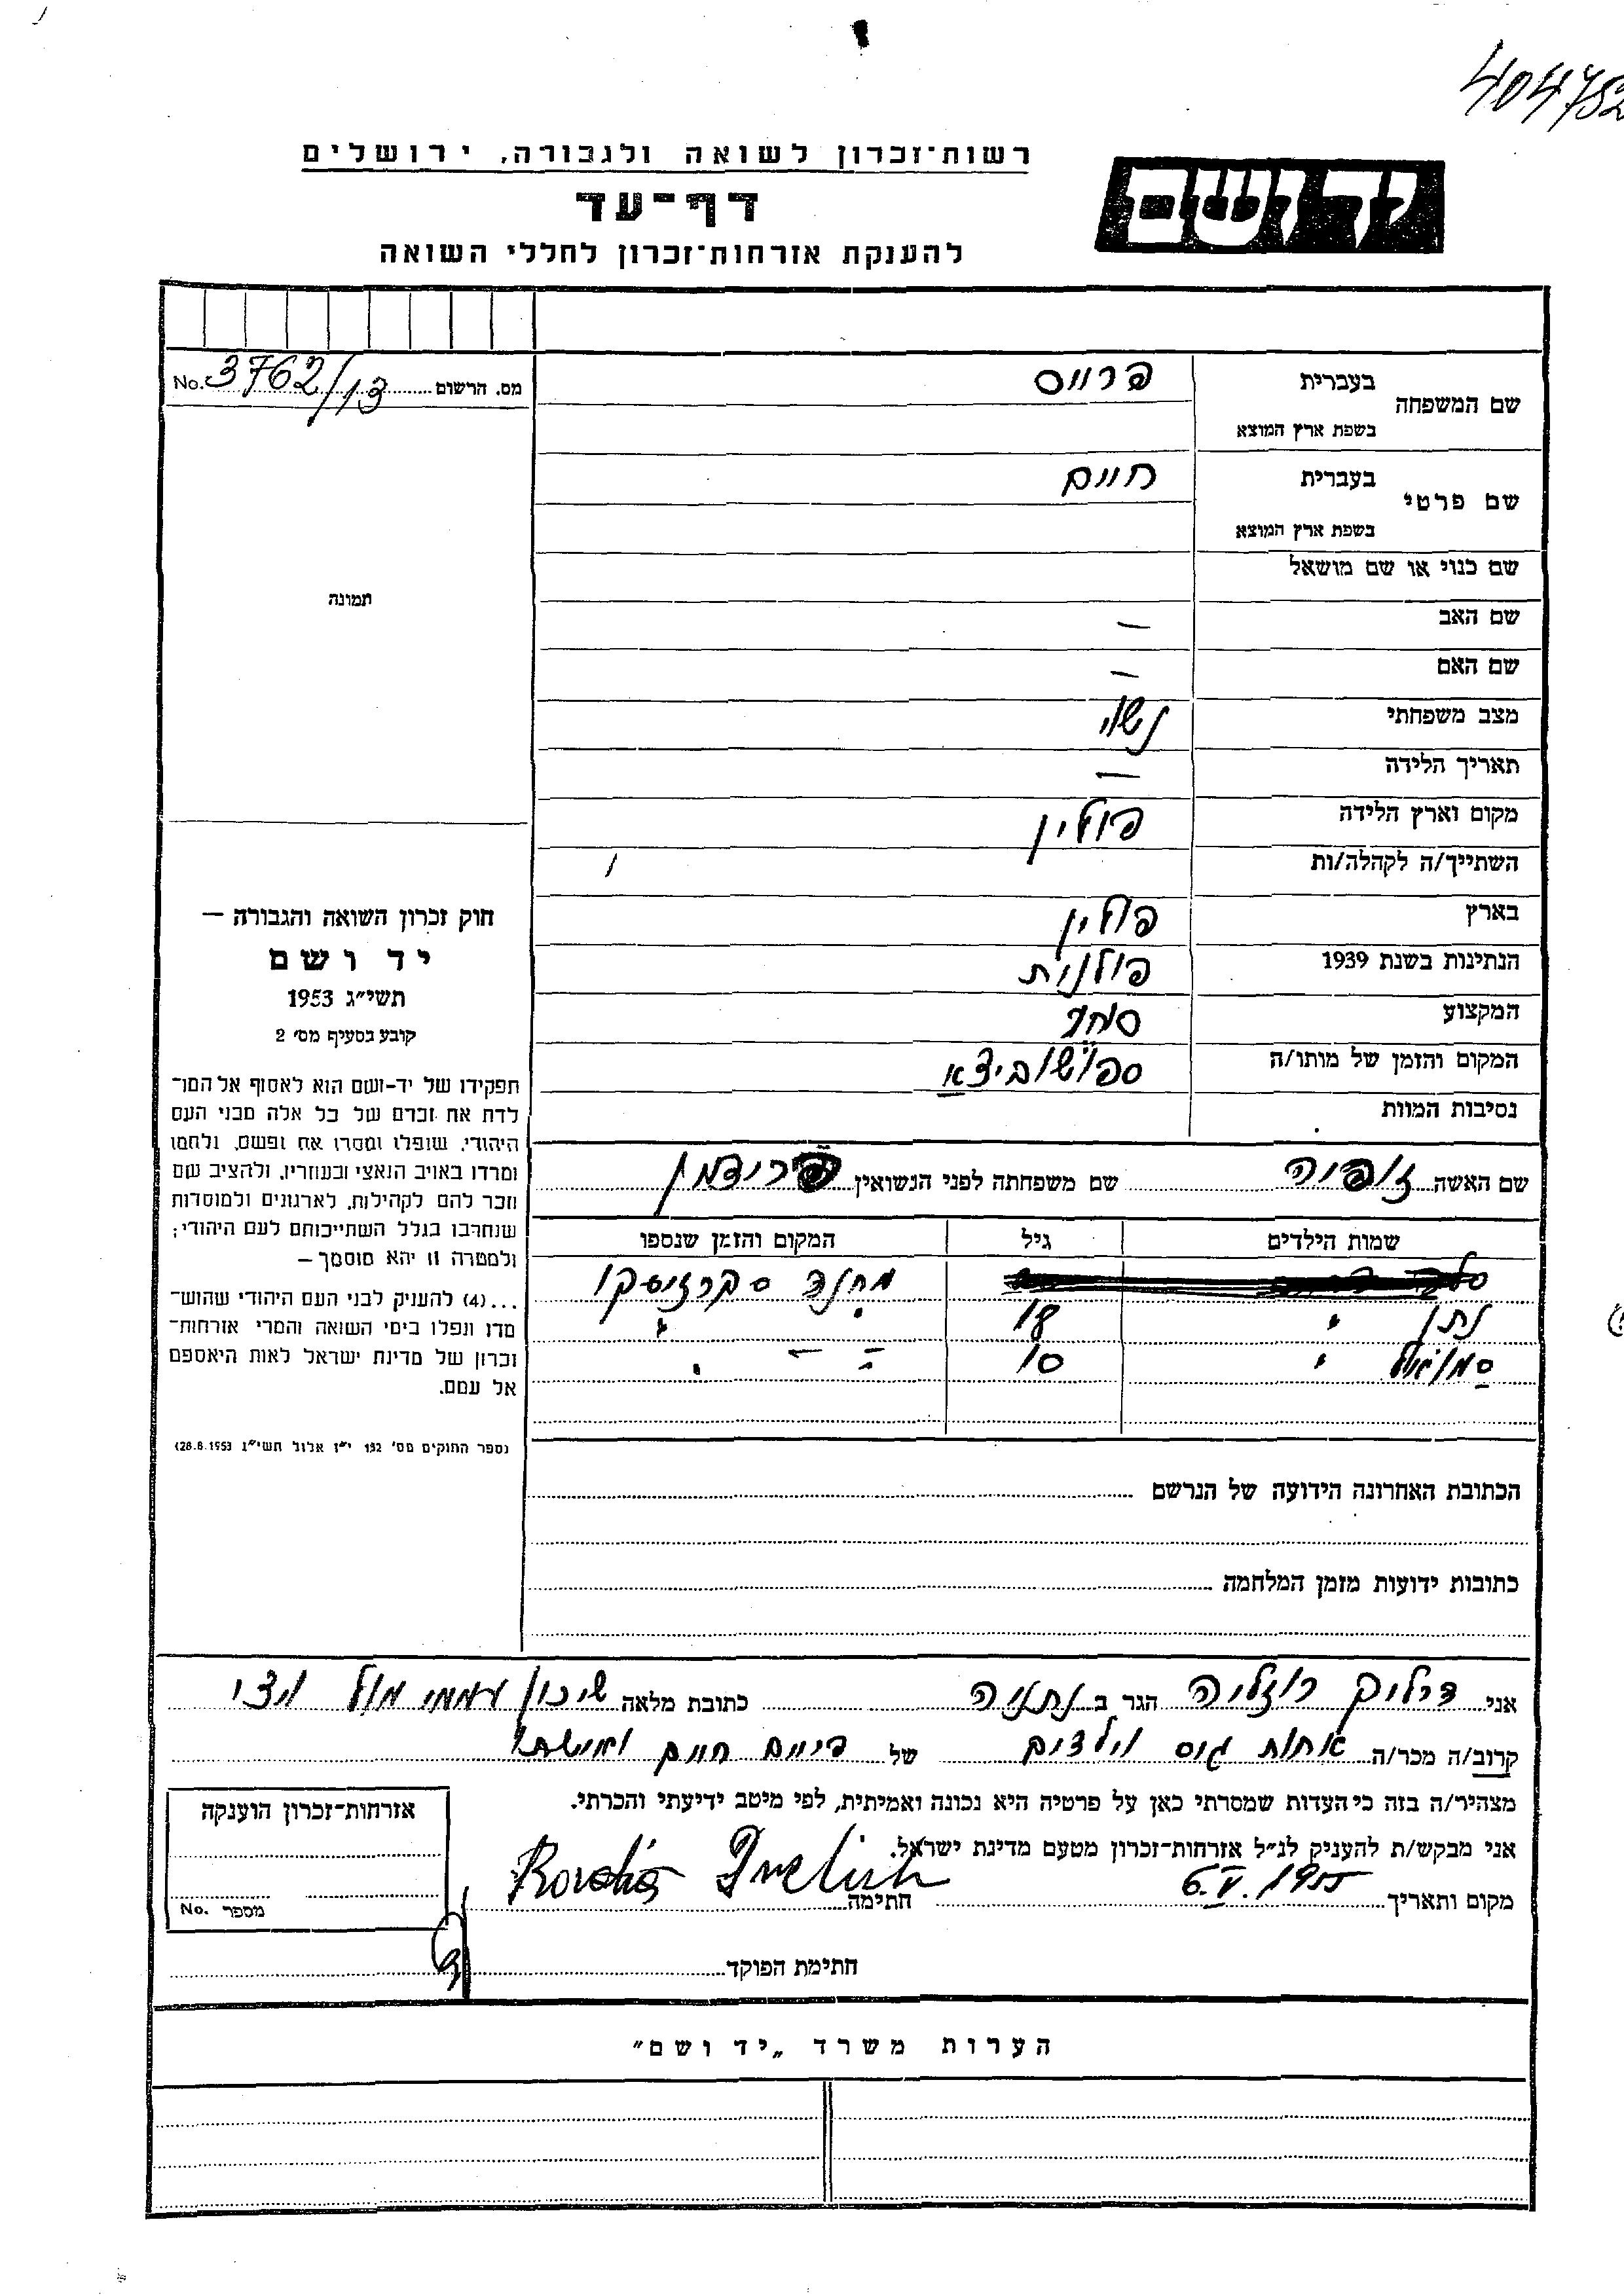 404752
רשות־זכרון לשואה ולגבורה, ירושלים
יד ושם
דף־עד
להענקת אזרחות־זכרון לחללי השואה
מס. הרשום 3762/13 No.
שם המשפחה
בעברית פרוים
בשפת ארץ המוצא
שם פרטי
בעברית חיים
בשפת ארץ המוצא
שם כנוי או שם מושאל
שם האב —
שם האם —
מצב משפחתי נשוי
תאריך הלידה —
מקום וארץ הלידה פולין
השתייך/ה לקהלה/ות
בארץ פולין
הנתינות בשנת 1939 פולנית
המקצוע סוחר
המקום והזמן של מותו/ה
נסיבות המוות
שם האשה זופיה שם משפחתה לפני הנשואין פרידמן
שמות הילדים גיל המקום והזמן שנספו
מחנה
נתן " 18 " "
סמואל " 10 " — "
הכתובת האחרונה הידועה של הנרשם
כתובות ידועות מזמן המלחמה
תמונה
חוק זכרון השואה והגבורה —
יד ושם
תשי״ג 1953
קובע בסעיף מס׳ 2
תפקידו של יד-ושם הוא לאסוף אל המו־
לדת את זכרם של כל אלה מבני העם
היהודי, שנפלו ומסרו את נפשם, נלחמו
ומרדו באויב הנאצי ובעוזריו, ולהציב שם
וזכר להם לקהילות, לארגונים ולמוסדות
שנחרבו בגלל השתייכותם לעם היהודי;
ולמטרה זו יהא מוסמך —
...(4) להענקיק לבני העם היהודי שהוש־
מדו ונפלו בימי השואה והמרי אזרחות־
זכרון של מדינת ישראל לאות היאספם
אל עמם.
(ספר החוקים מס׳ 132 י״ז אלול תשי״ג 28.8.1953)
אני דרליך רוזליה הגר ב נתניה כתובת מלאה שיכון עממי מול ויצו
קרוב/ה מכר/ה אחות גיס וילדים של פרוים חיים ואישתו
מצהיר/ה בזה כי העדות שמסרתי כאן על פרטיה היא נכונה ואמיתית, לפי מיטב ידיעתי והכרתי.
אני מבקש/ת להעניק לנ״ל אזרחות־זכרון מטעם מדינת ישראל.
מקום ותאריך 6.V.1955 חתימה
חתימת הפוקד
אזרחות־זכרון הוענקה
מספר No.
הערות משרד „יד ושם״